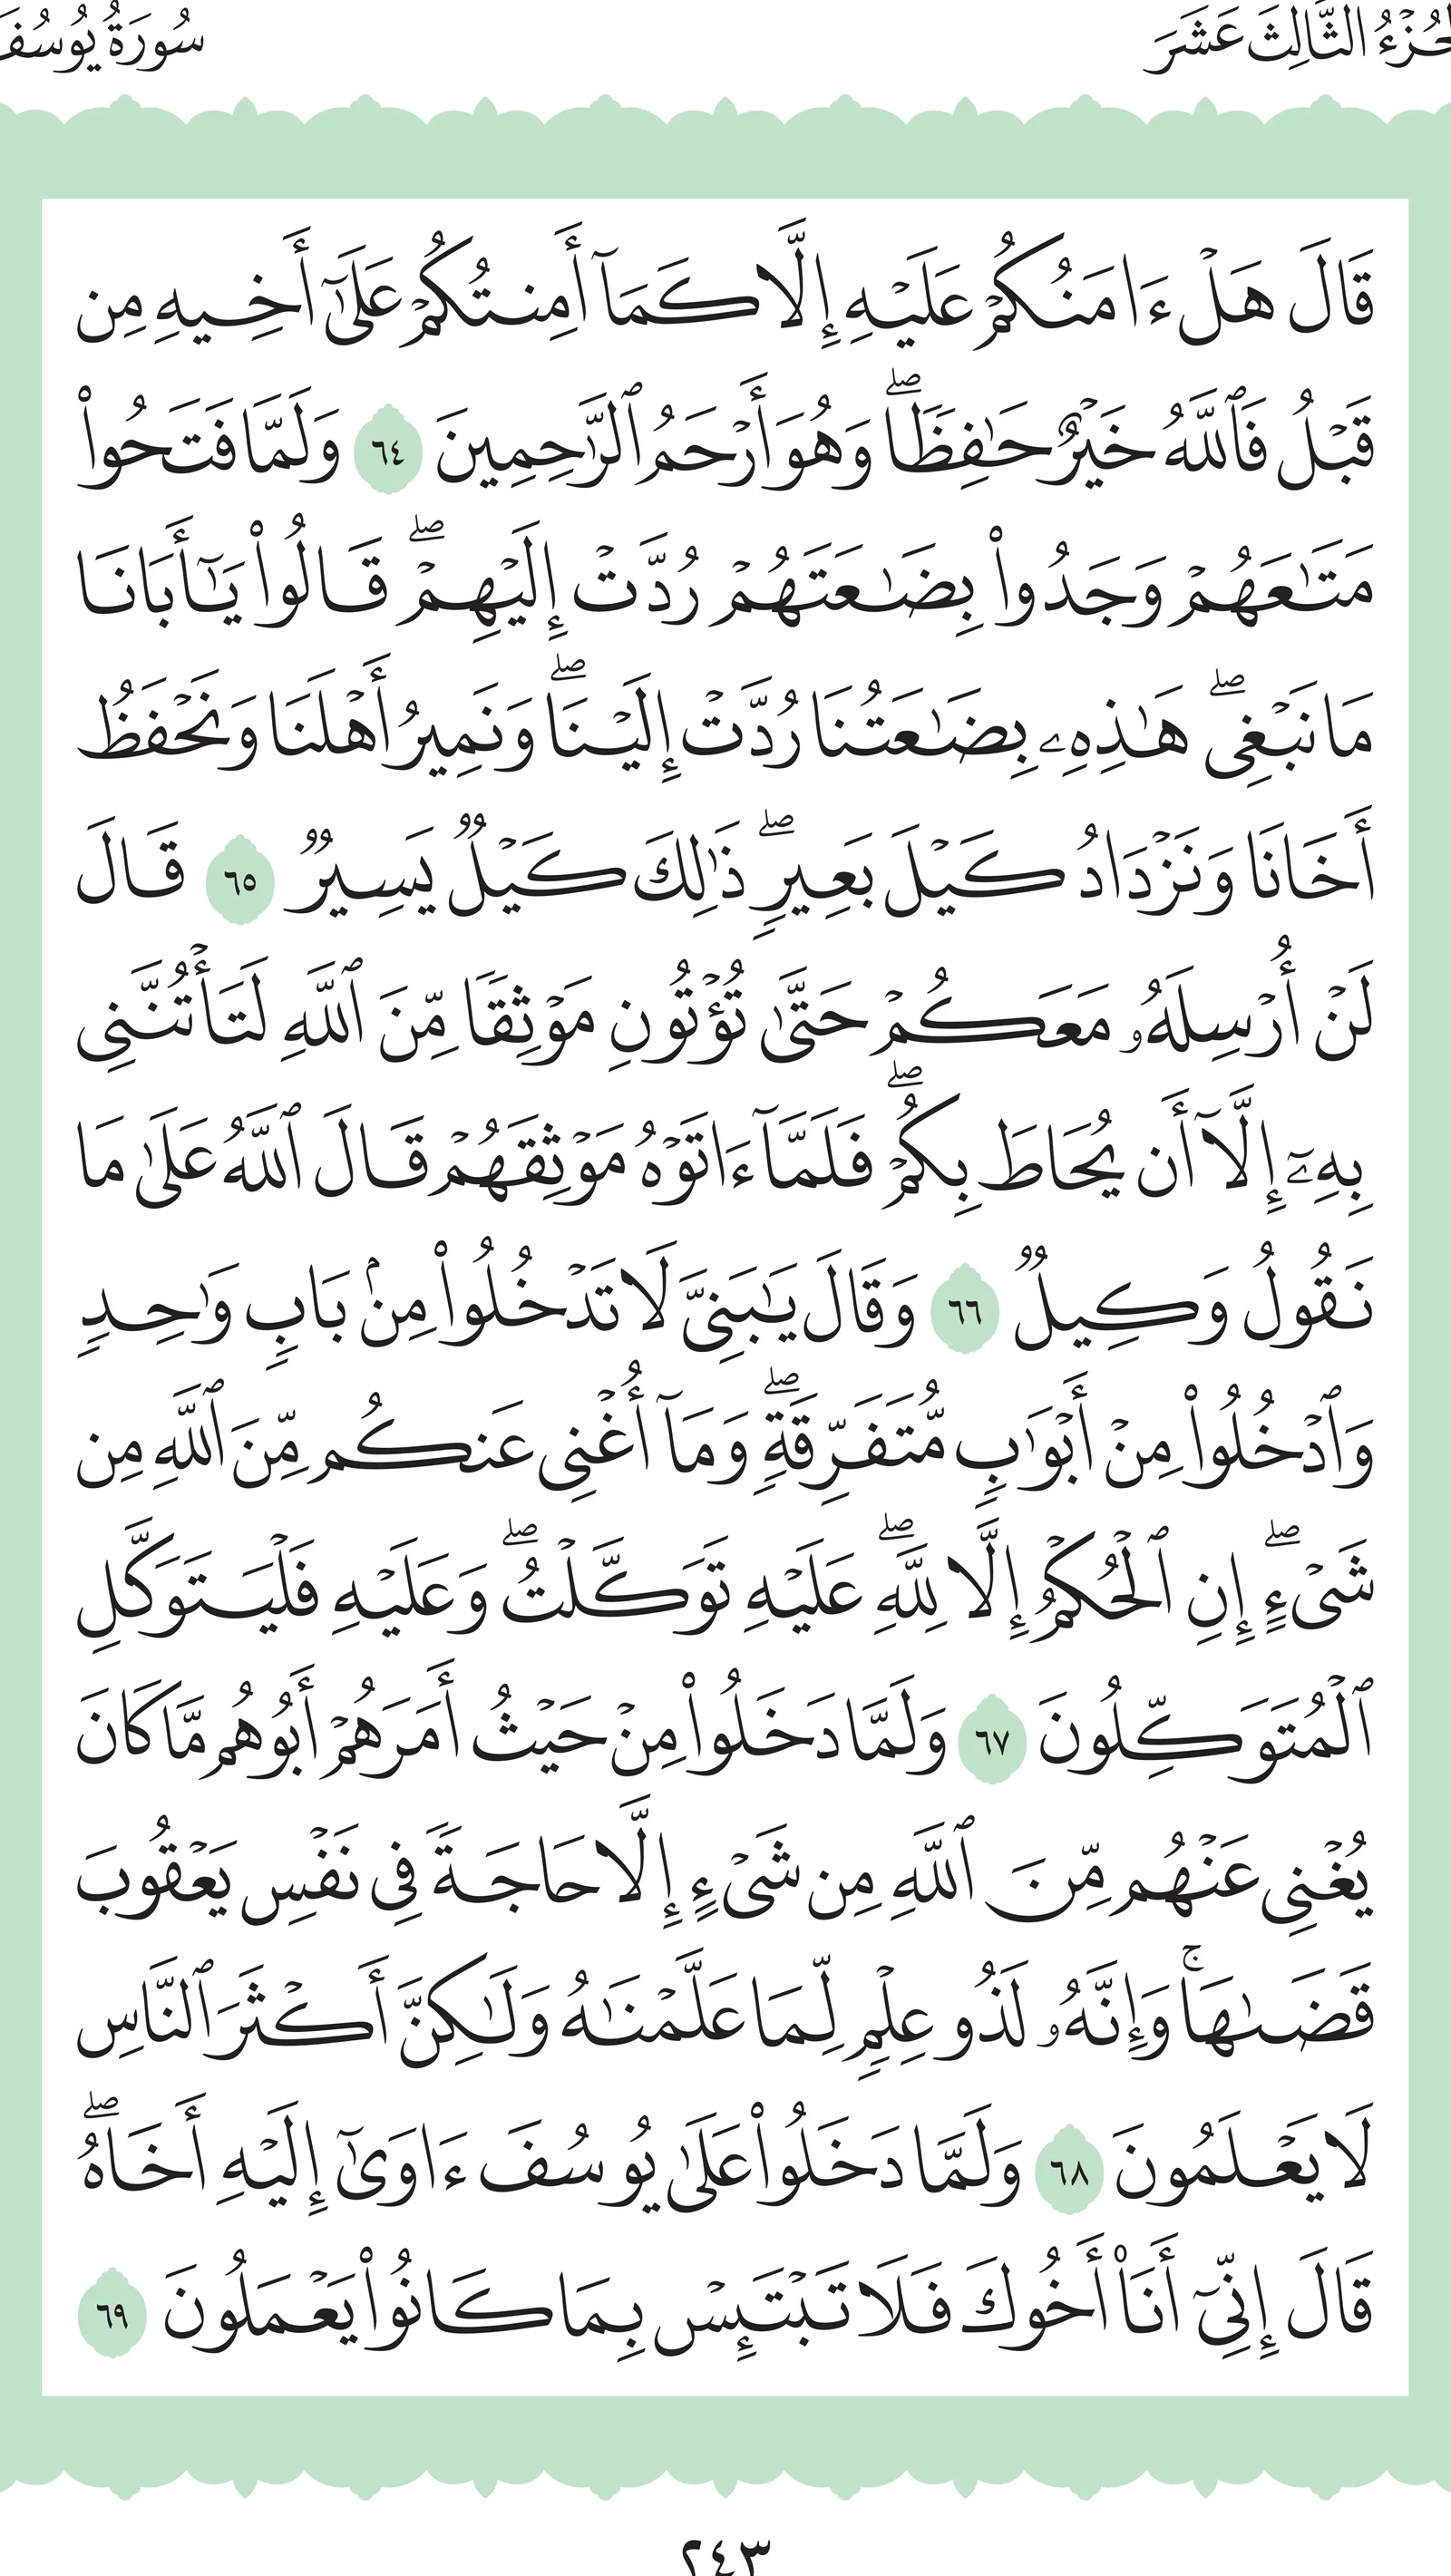 الجُزْءُ الثَّالِثَ عَشَرَ سُورَةُ يُوسُفَ
قَالَ هَلۡ ءَامَنُكُمۡ عَلَيۡهِ إِلَّا كَمَآ أَمِنتُكُمۡ عَلَىٰٓ أَخِيهِ مِن
قَبۡلُ فَٱللَّهُ خَيۡرٌ حَٰفِظٗاۖ وَهُوَ أَرۡحَمُ ٱلرَّٰحِمِينَ ٦٤ وَلَمَّا فَتَحُواْ
مَتَٰعَهُمۡ وَجَدُواْ بِضَٰعَتَهُمۡ رُدَّتۡ إِلَيۡهِمۡۖ قَالُواْ يَٰٓأَبَانَا
مَا نَبۡغِيۖ هَٰذِهِۦ بِضَٰعَتُنَا رُدَّتۡ إِلَيۡنَاۖ وَنَمِيرُ أَهۡلَنَا وَنَحۡفَظُ
أَخَانَا وَنَزۡدَادُ كَيۡلَ بَعِيرٖۖ ذَٰلِكَ كَيۡلٞ يَسِيرٞ ٦٥ قَالَ
لَنۡ أُرۡسِلَهُۥ مَعَكُمۡ حَتَّىٰ تُؤۡتُونِ مَوۡثِقٗا مِّنَ ٱللَّهِ لَتَأۡتُنَّنِي
بِهِۦٓ إِلَّآ أَن يُحَاطَ بِكُمۡۖ فَلَمَّآ ءَاتَوۡهُ مَوۡثِقَهُمۡ قَالَ ٱللَّهُ عَلَىٰ مَا
نَقُولُ وَكِيلٞ ٦٦ وَقَالَ يَٰبَنِيَّ لَا تَدۡخُلُواْ مِنۢ بَابٖ وَٰحِدٖ
وَٱدۡخُلُواْ مِنۡ أَبۡوَٰبٖ مُّتَفَرِّقَةٖۖ وَمَآ أُغۡنِي عَنكُم مِّنَ ٱللَّهِ مِن
شَيۡءٍۖ إِنِ ٱلۡحُكۡمُ إِلَّا لِلَّهِۖ عَلَيۡهِ تَوَكَّلۡتُۖ وَعَلَيۡهِ فَلۡيَتَوَكَّلِ
ٱلۡمُتَوَكِّلُونَ ٦٧ وَلَمَّا دَخَلُواْ مِنۡ حَيۡثُ أَمَرَهُمۡ أَبُوهُم مَّا كَانَ
يُغۡنِي عَنۡهُم مِّنَ ٱللَّهِ مِن شَيۡءٍ إِلَّا حَاجَةٗ فِي نَفۡسِ يَعۡقُوبَ
قَضَىٰهَاۚ وَإِنَّهُۥ لَذُو عِلۡمٖ لِّمَا عَلَّمۡنَٰهُ وَلَٰكِنَّ أَكۡثَرَ ٱلنَّاسِ
لَا يَعۡلَمُونَ ٦٨ وَلَمَّا دَخَلُواْ عَلَىٰ يُوسُفَ ءَاوَىٰٓ إِلَيۡهِ أَخَاهُۖ
قَالَ إِنِّيٓ أَنَا۠ أَخُوكَ فَلَا تَبۡتَئِسۡ بِمَا كَانُواْ يَعۡمَلُونَ ٦٩
٢٤٣